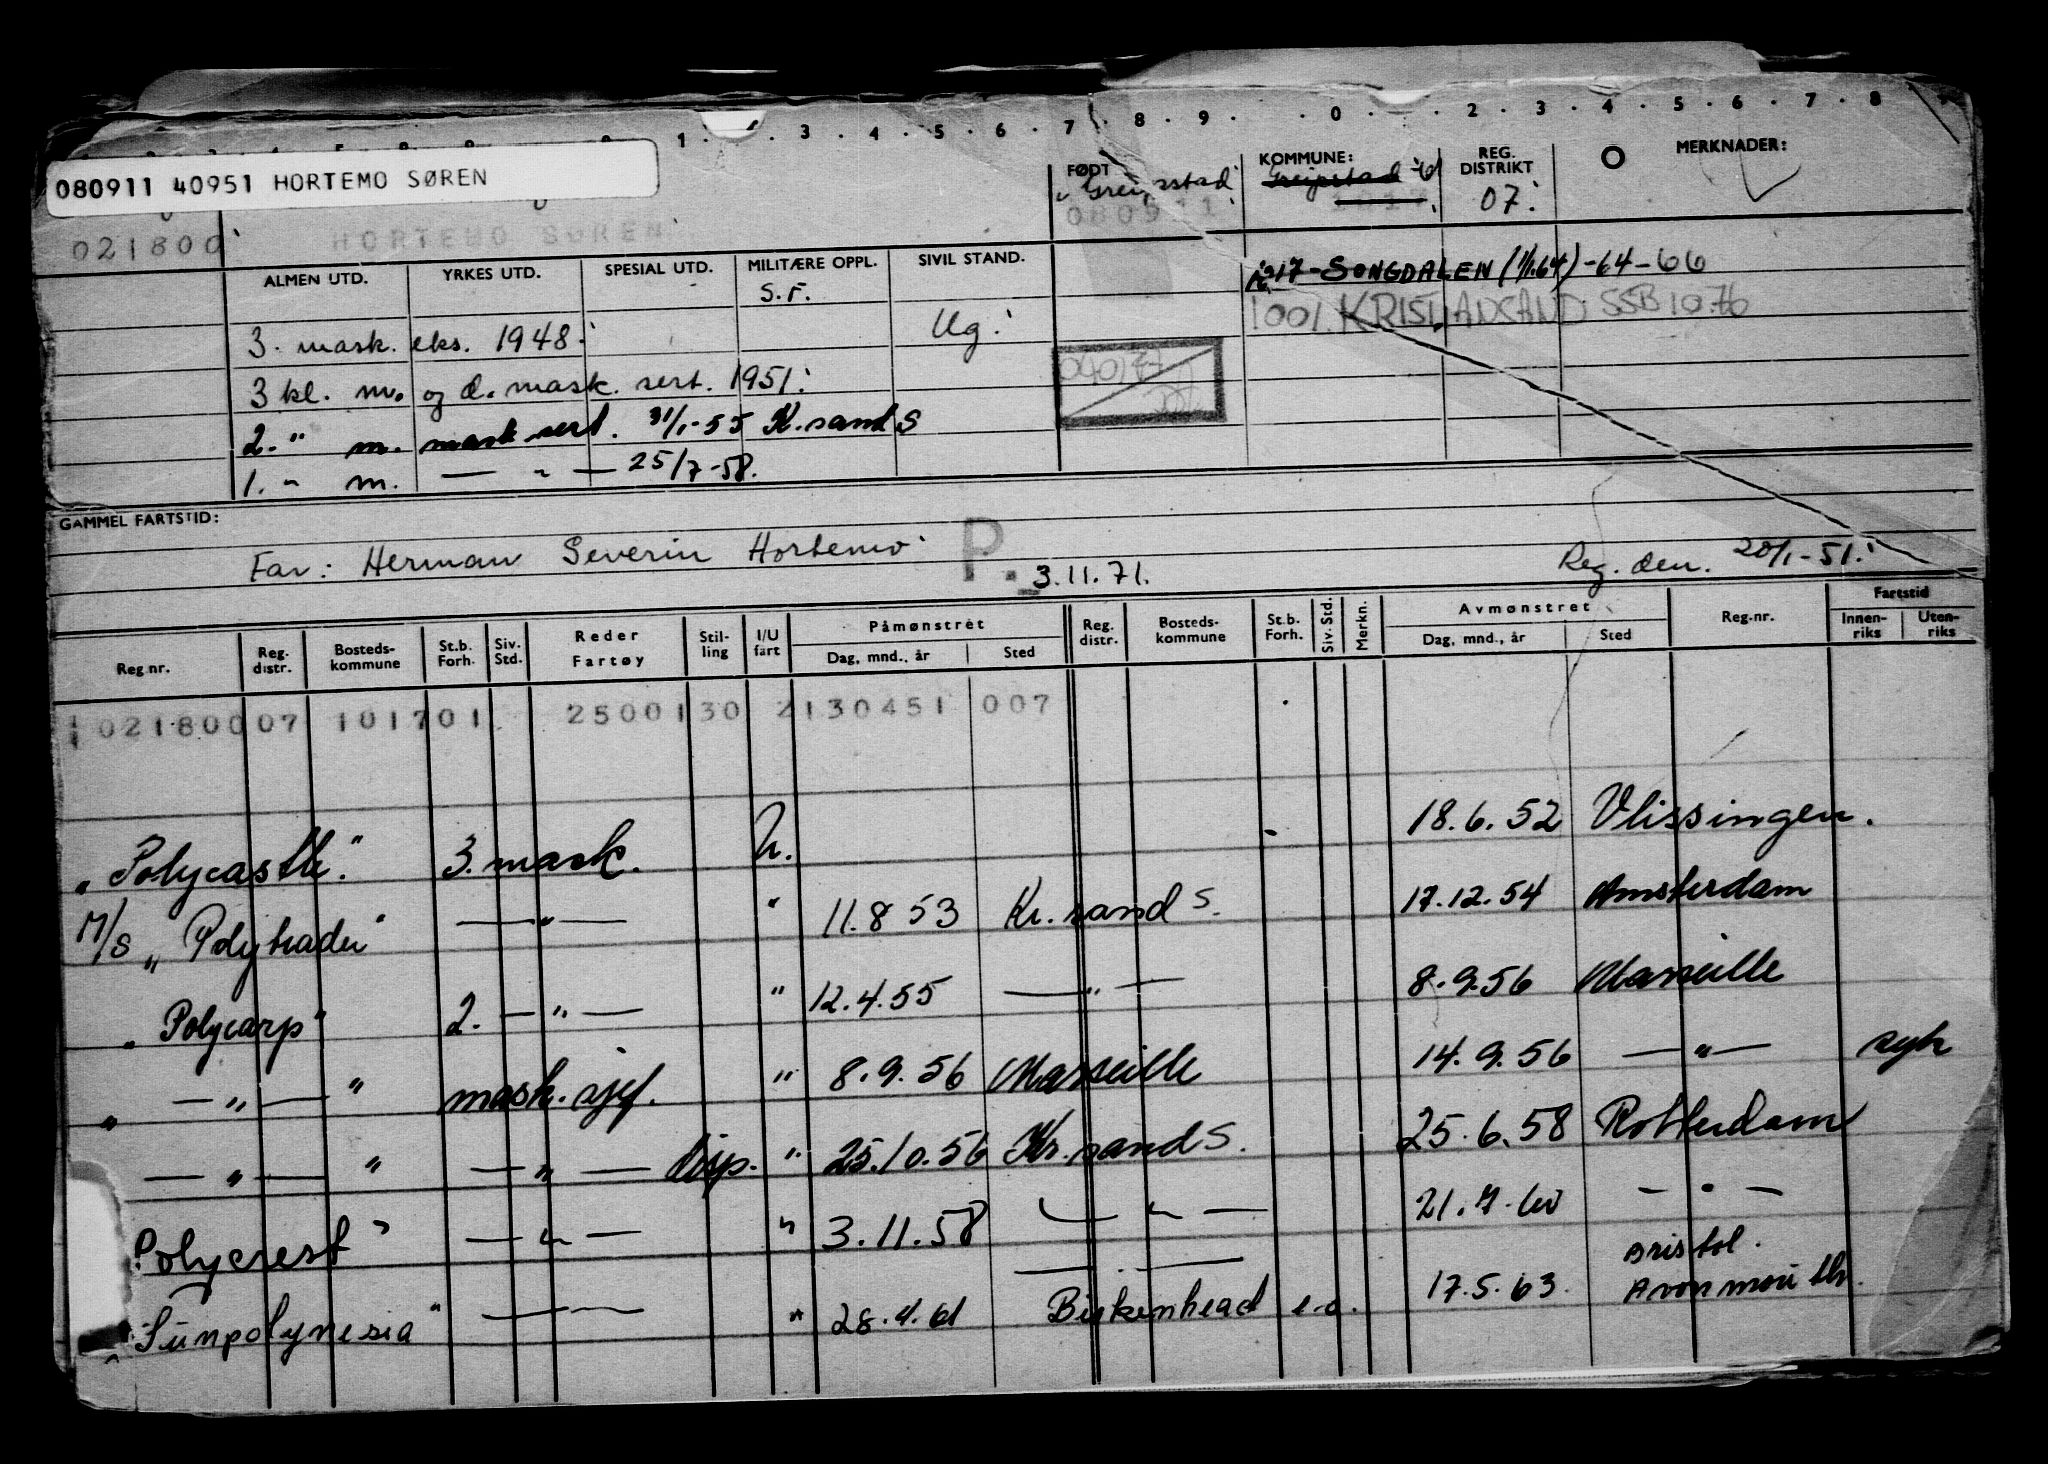 1 . 2 . 3 . 4 . 5 . 6 . 7 . 8 . 9 . . 0 . . 2 . 3 . 4 . 5 . 6 . 7 . 8
080911 40951 HORTEMO SØREN
FØDT KOMMUNE: REG. DISTRIKT MERKNADER:
Greipstad Greipstad
021800 HORTEMO SØREN 080911 1017 07.
ALMEN UTD. YRKES UTD. SPESIAL UTD. MILITÆRE OPPL. SIVIL STAND.
1017 - SONGDALEN (1/1.64) -64-66
S.F.
1001 KRISTIANSAND SSB 10.76
3. mask. eks. 1948. Ug.
3 kl. m. og d. mask. sert. 1951.
2. " m. mask sert. 31/1-55 K.sand S
1. " m. — " — 25/7-58.
GAMMEL FARTSTID:
Far: Herman Severin Hortemo P. 3.11.71. Reg. den. 20/1-51.
Reg.nr. Reg. distr. Bosteds- kommune St.b. Forh. Siv. Std. Reder Fartøy Stil- ling I/U fart Påmønstret Dag, mnd., år Sted Reg. distr. Bosteds- kommune St.b. Forh. Siv. Std. Merkn. Avmønstret Dag, mnd., år Sted Reg.nr. Fartstid Innen- riks Uten- riks
021800 07 1017 01 25001 30 2 130451 007
"Polycastle" 3. mask. U. 18.6.52 Vlissingen.
M/S "Polytrader" — " — " 11.8 53 Kr.sand S. 17.12.54 Amsterdam
"Polycarp" 2. — " — " 12.4.55 — " — 8.9.56 Marseille
" — " — " mask.sjef. " 8.9.56 Marseille 14.9.56 — " — syk
— " — " — " — disp. " 25.10.56 Kr.sand S. 25.6.58 Rotterdam
Polycrest" — " — " 3.11.58 — " — 21.7.60 — " —
"Sunpolynesia" — " 28.4.61 Birkenhead e.o. 17.5.63. Bristol. Avonmouth.